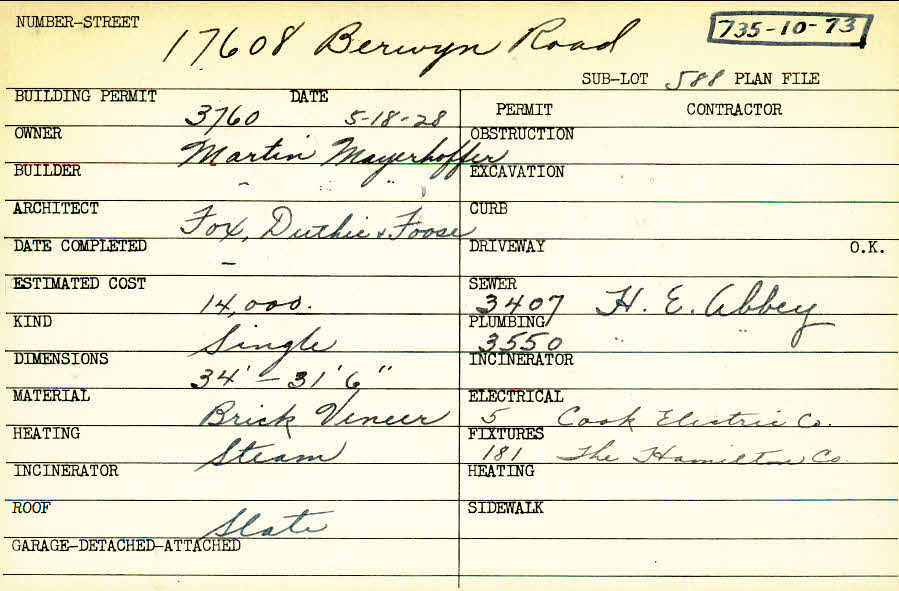 NUMBER-STREET 17608 Berwyn Road 735-10-73
SUB-LOT 588 PLAN FILE
BUILDING PERMIT 3760 DATE 5-18-28
PERMIT CONTRACTOR
OWNER Martin Mayerhoffer
OBSTRUCTION
BUILDER " " "
EXCAVATION
ARCHITECT Fox, Duthie & Foose
CURB
DATE COMPLETED –
DRIVEWAY O.K.
ESTIMATED COST 14,000.
SEWER 3407 H. E. Abbey
KIND Single
PLUMBING 3550 " "
DIMENSIONS 34' – 31' 6"
INCINERATOR
MATERIAL Brick Veneer
ELECTRICAL 5 Cook Electric Co.
HEATING Steam
FIXTURES 181 The Hamilton Co.
INCINERATOR
HEATING
ROOF Slate
SIDEWALK
GARAGE-DETACHED-ATTACHED